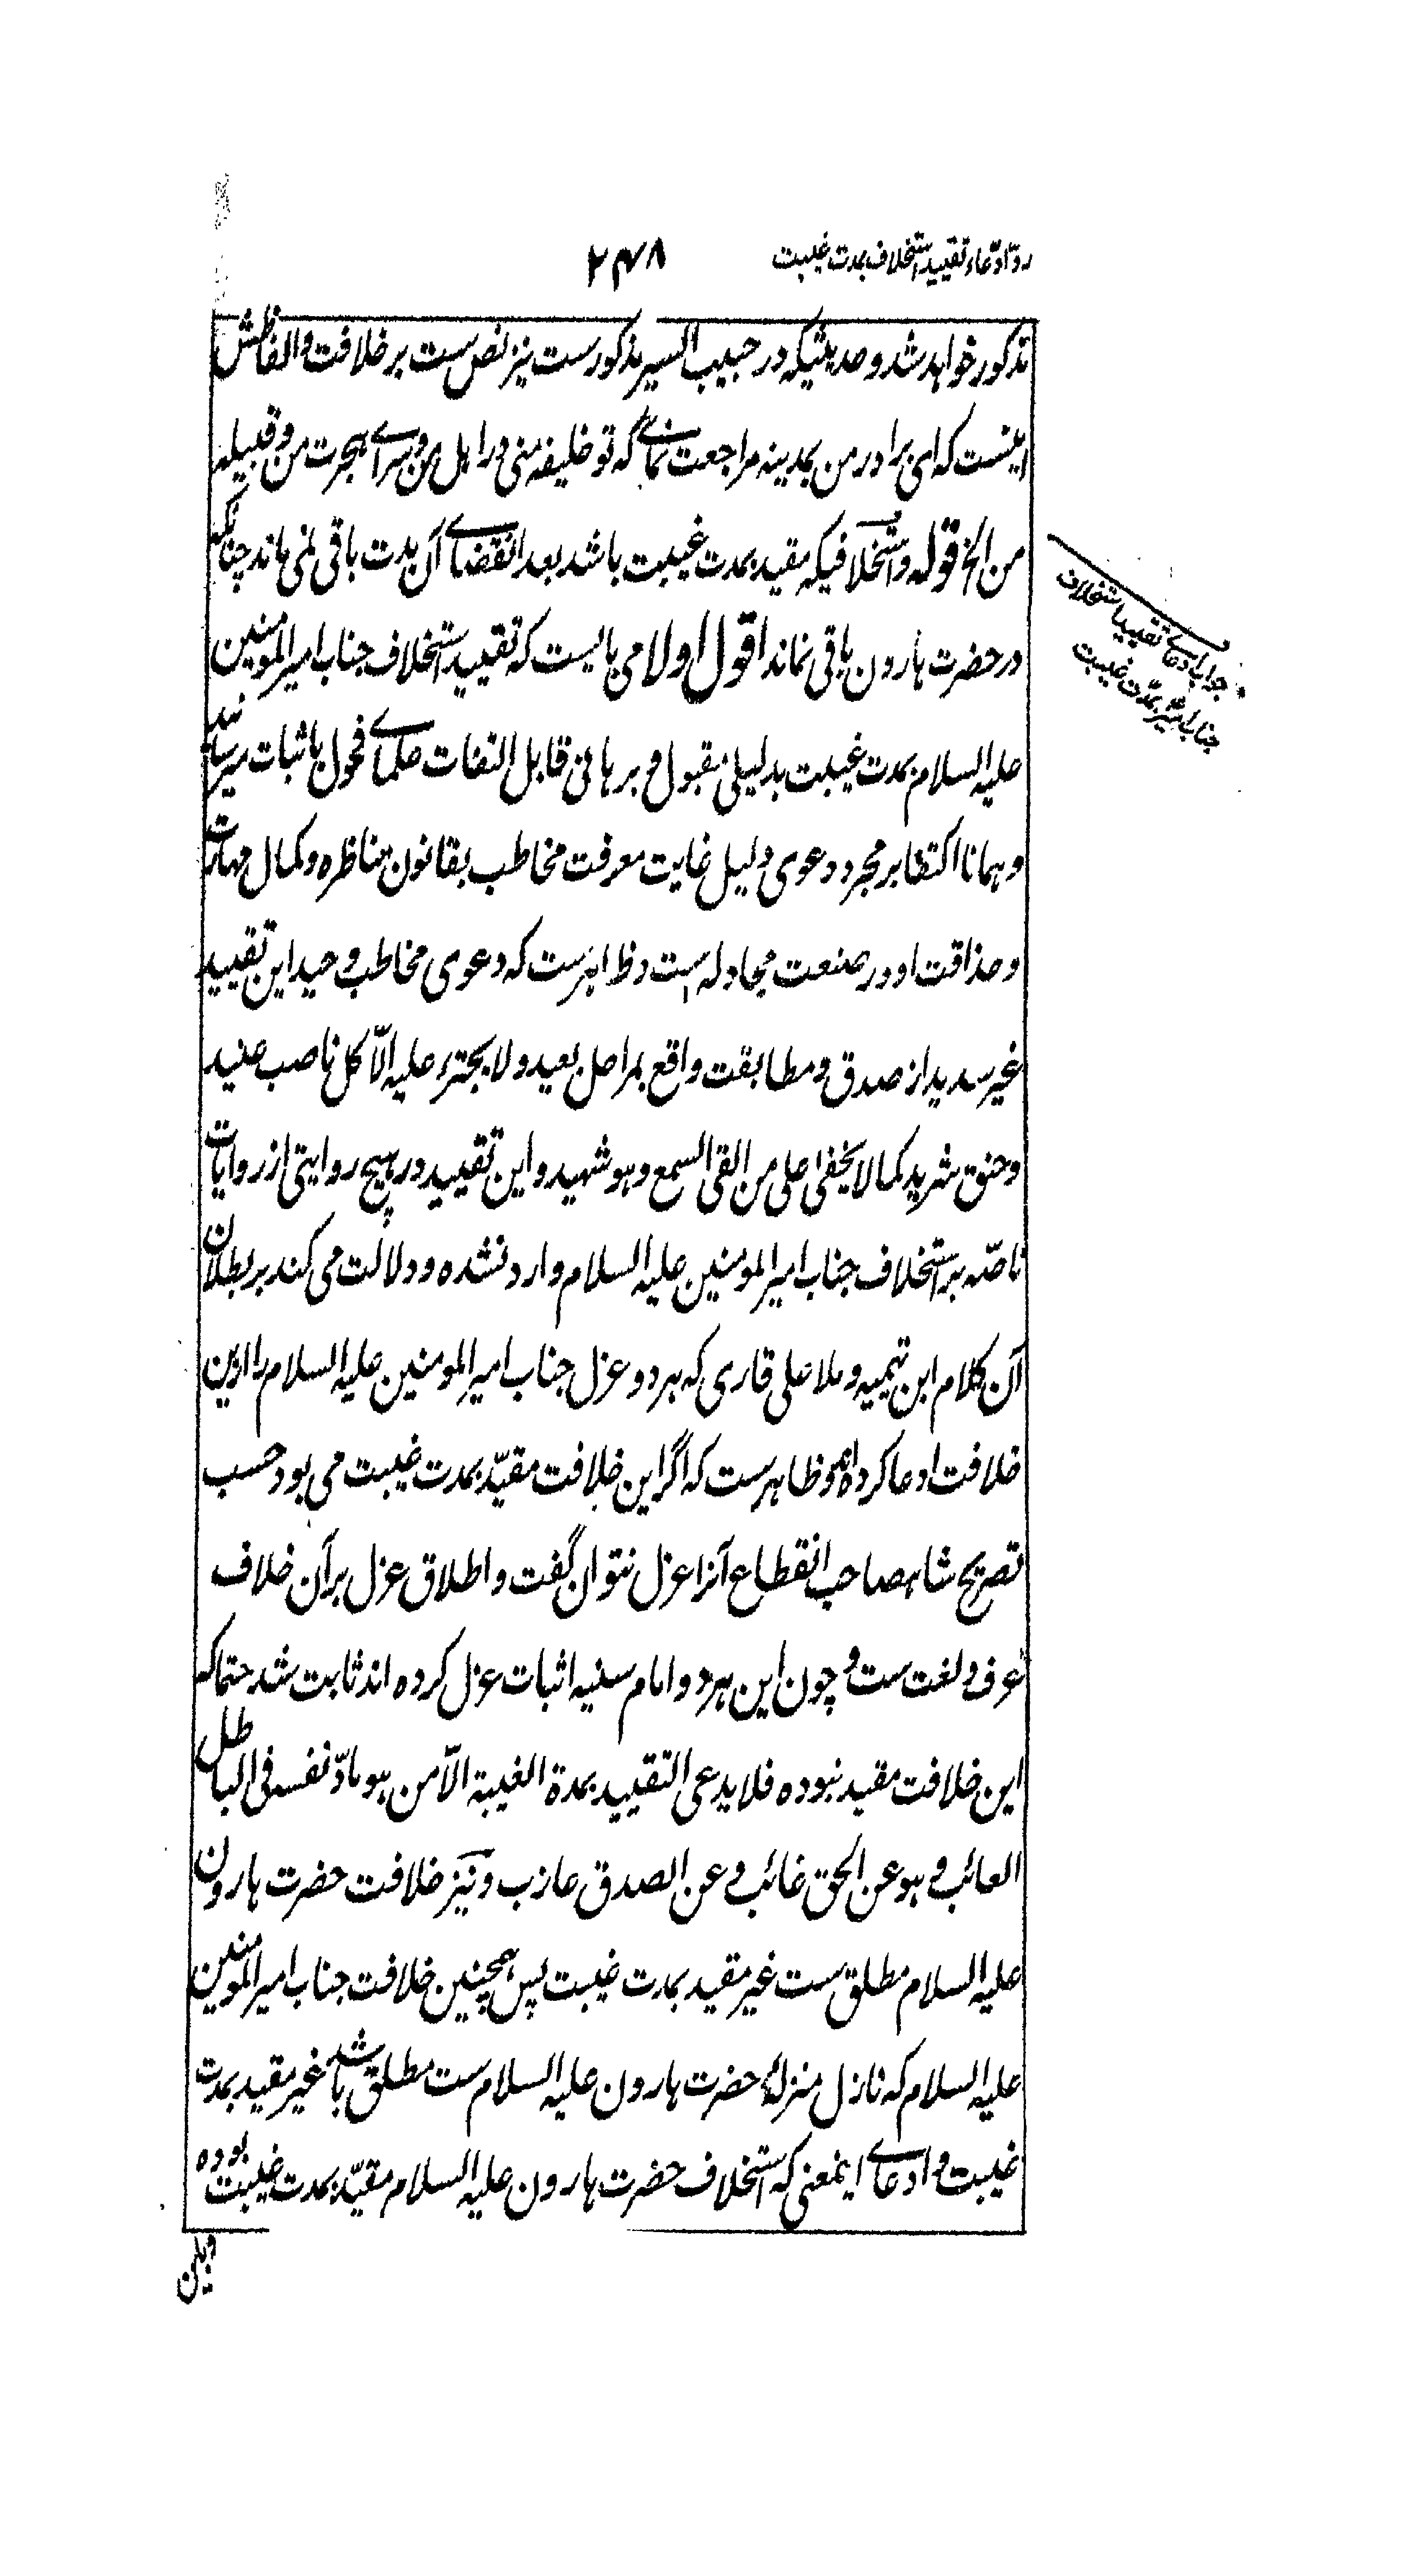 ردّ ادّعاء تقیید استخلاف بمدت غیبت
۲۴۸
مذکور خواهد شد و حدیثیکه در حبیب السیر مذکورست نیز نص ست بر خلافت و الفاظش
اینست که ای برادر من بمدینه مراجعت نمای که تو خلیفه منی در اهل من و سرای هجرت من و قبیله
من الخ قوله و استخلافیکه مقید بمدت غیبت باشد بعد انقضای آن مدت باقی نمی ماند چنانکه
در حضرت هارون باقی نماند اقول اولا می بایست که تقیید استخلاف جناب امیر المومنین
علیه السلام بمدت غیبت بدلیلی مقبول و برهانی قابل التفات علمای فحول باثبات میرسانید
و همانا اکتفا بر مجرد دعوی دلیل غایت معرفت مخاطب بقانون مناظره و کمال مهارت
و حذاقت او در صنعت مجادله است و ظاهرست که دعوی مخاطب وحید این تقیید
غیر سدید از صدق و مطابقت واقع بمراحل بعید و لا یجترء علیه الّا کل ناصب عنید
و حنق شرید کما لا یخفی علی من القی السمع و هو شهید و این تقیید در هیچ روایتی از روایات
ناصّه بر استخلاف جناب امیر المومنین علیه السلام وارد نشده و دلالت می کند بر بطلان
آن کلام ابن تیمیه و ملا علی قاری که هر دو عزل جناب امیر المومنین علیه السلام را ازین
خلافت ادعا کرده اند و ظاهرست که اگر این خلافت مقیّد بمدت غیبت می بود حسب
تصریح شاهصاحب انقطاع آنرا عزل نتوان گفت و اطلاق عزل بر آن خلاف
عرف و لغت ست و چون این هر دو امام سنیه اثبات عزل کرده اند ثابت شد حتما که
این خلافت مقید نبوده فلا یدعی التقیید بمدة الغیبة الّا من هو مادّ نفسه فی الباطل
العائب و هو عن الحق غائب و عن الصدق عازب و نیز خلافت حضرت هارون
علیه السلام مطلق ست غیر مقید بمدت غیبت پس همچنین خلافت جناب امیر المومنین
علیه السلام که نازل منزلهٔ حضرت هارون علیه السلام ست مطلق باشد غیر مقید بمدت
غیبت و ادعای اینمعنی که استخلاف حضرت هارون علیه السلام مقیّد بمدت غیبت بوده
جواب ادعای تقیید استخلاف
جناب امیر بمدّت غیبت